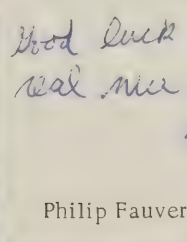 Good luck
real nice
Philip Fauver